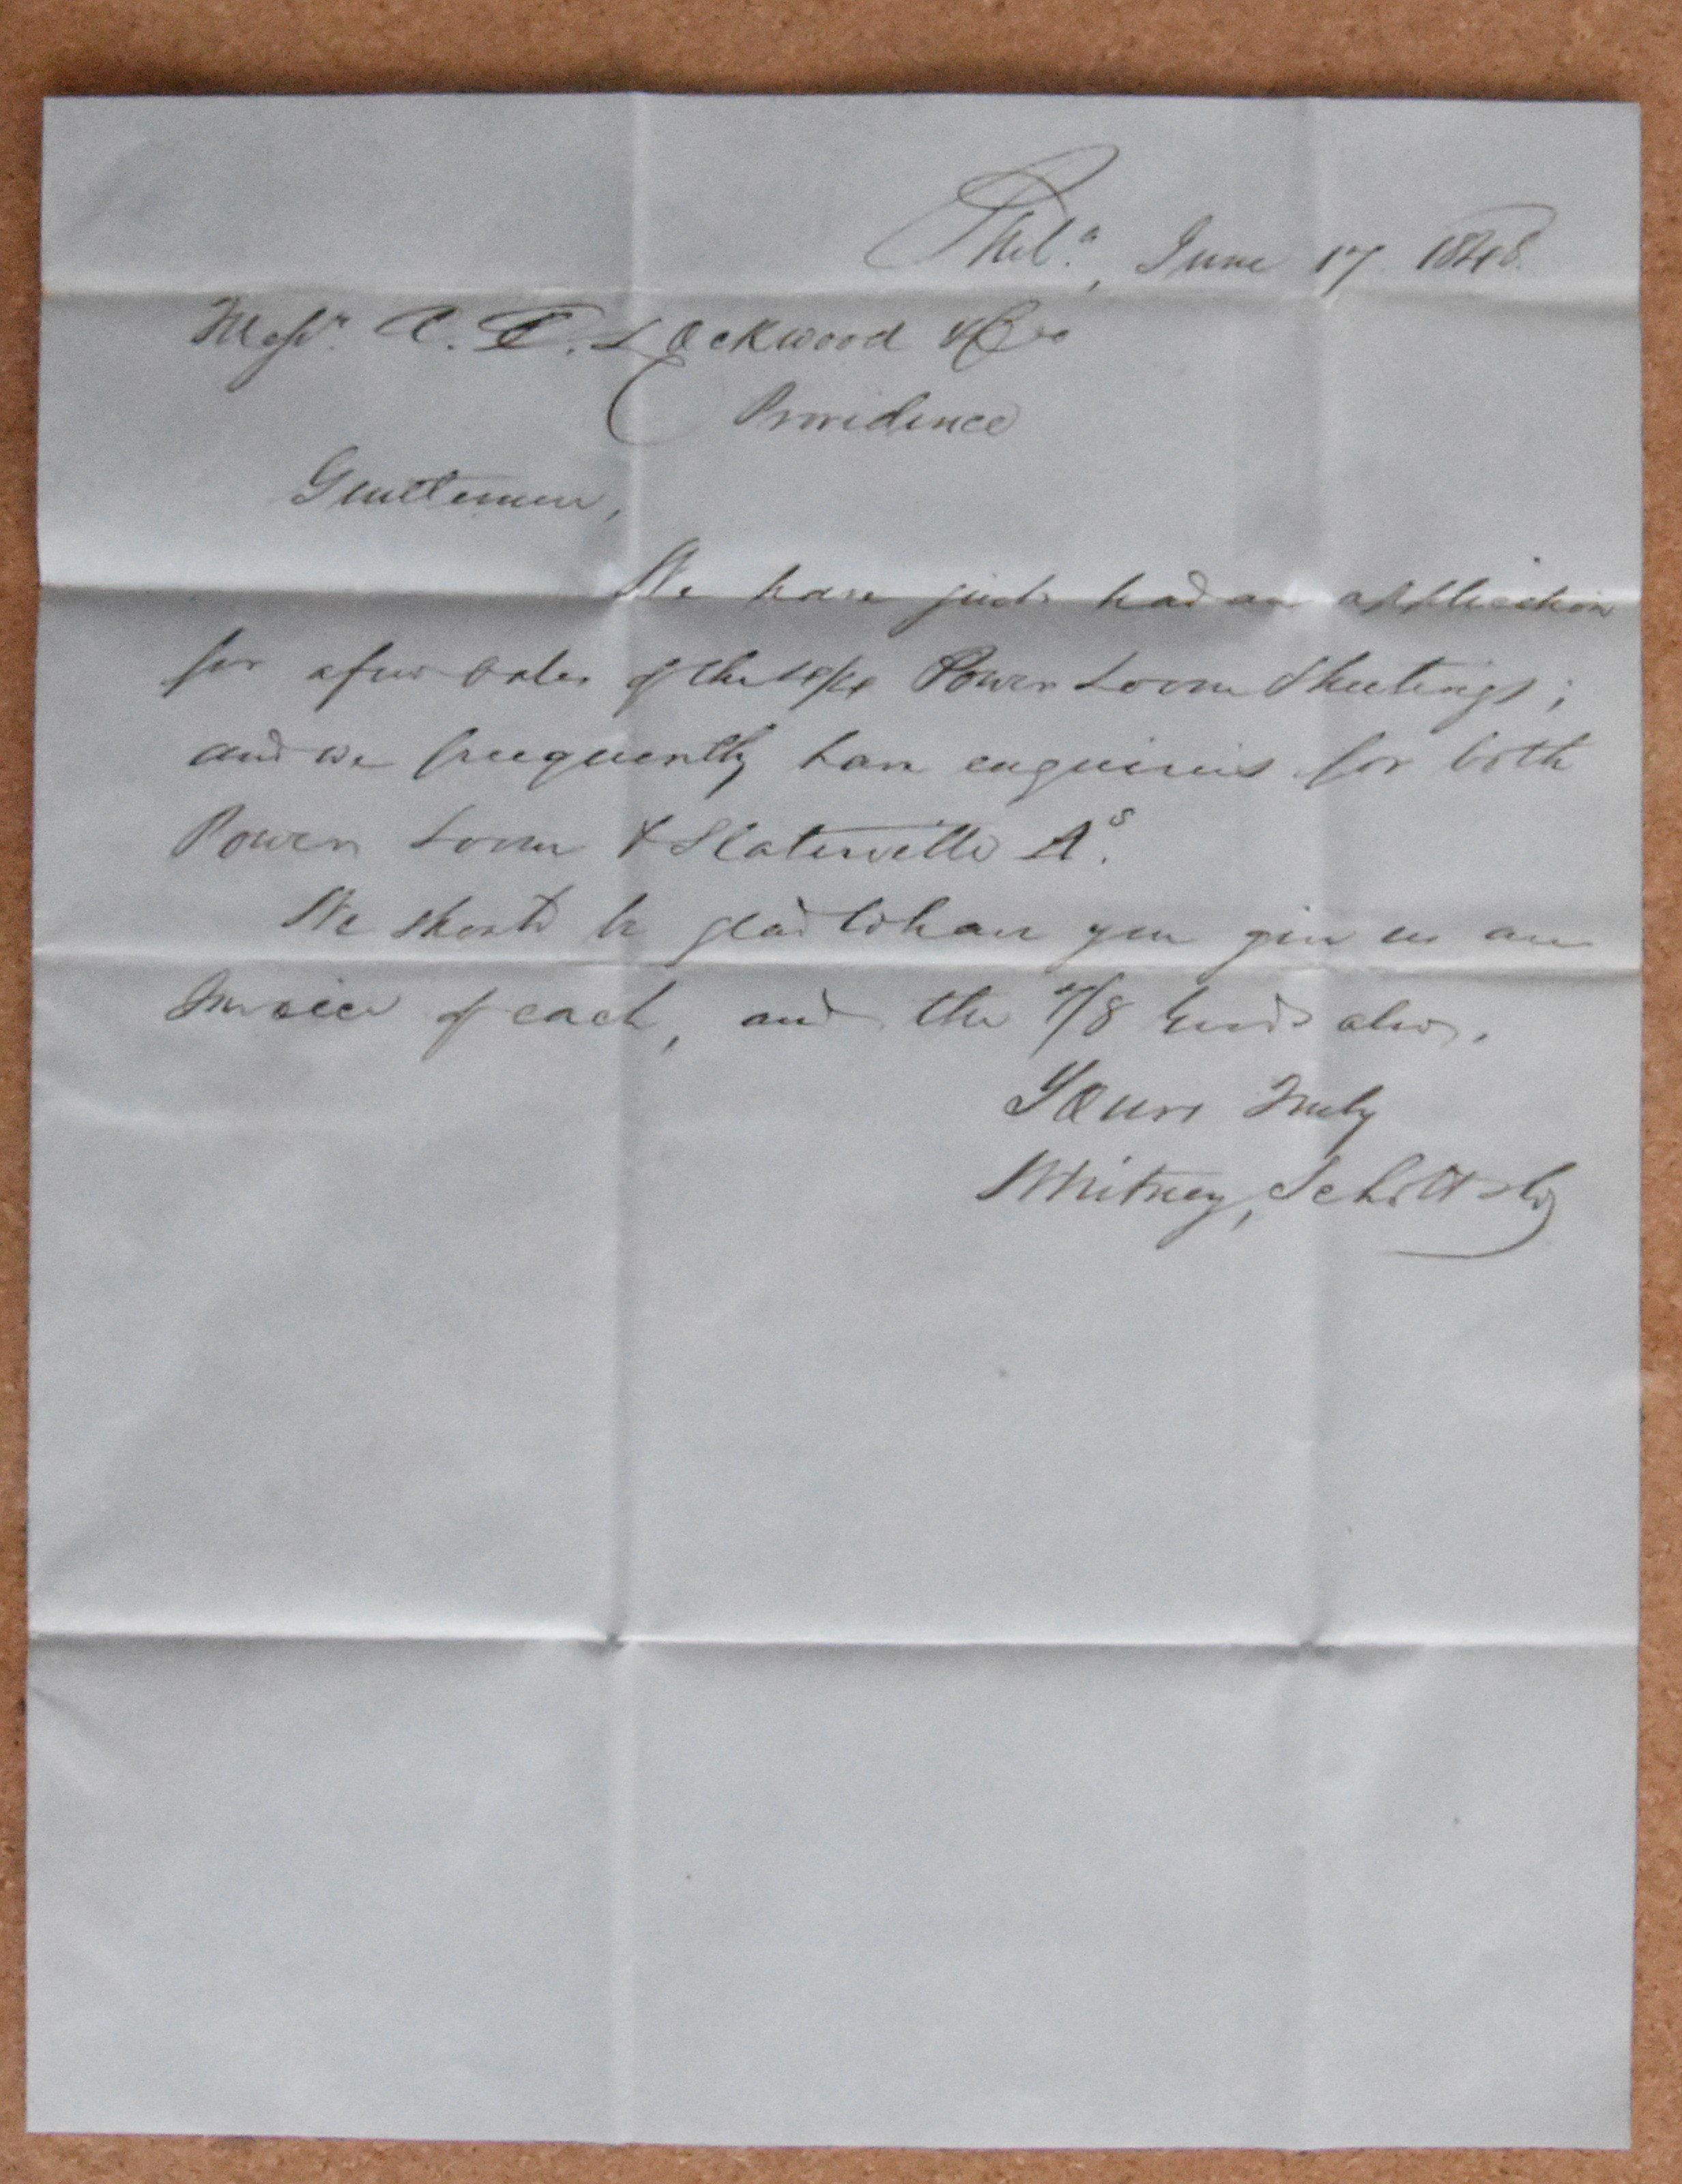 Phil.ª, June 17 1848.
Messrs. A. D. Lockwood & Co
Providence
Gentlemen,
We have just had an application
for a few bales of the 4/4 Power Loom Sheetings;
and we frequently have enquiries for both
Power Loom & Slatersville A.s
We should be glad to have you give us an
Invoice of each, and the 7/8 also.
Yours Truly
Whitney, Schott & Co